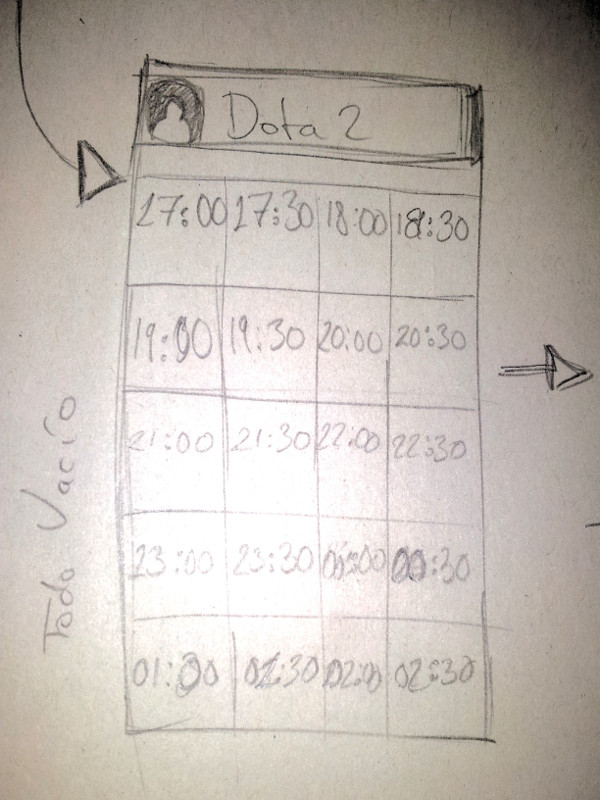 Dota 2
17:00 17:30 18:00 18:30
19:00 19:30 20:00 20:30
21:00 21:30 22:00 22:30
23:00 23:30 00:00 00:30
01:00 01:30 02:00 02:30
Todo Vacío